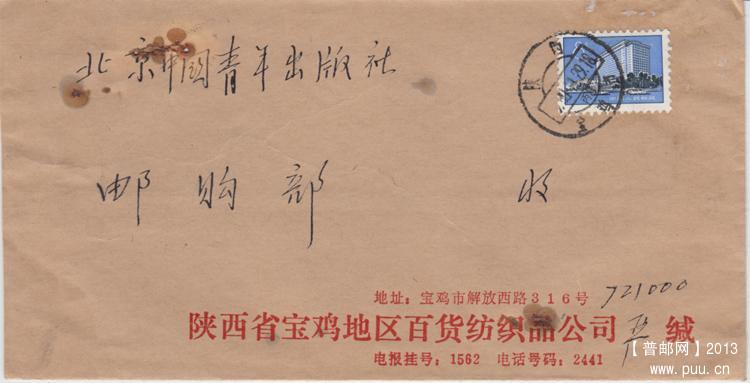 北京中国青年出版社
邮购部 收
地址：宝鸡市解放西路316号 721000
陕西省宝鸡地区百货纺织品公司 缄
电报挂号：1562 电话号码：2441
【普邮网】2013
www.puu.cn